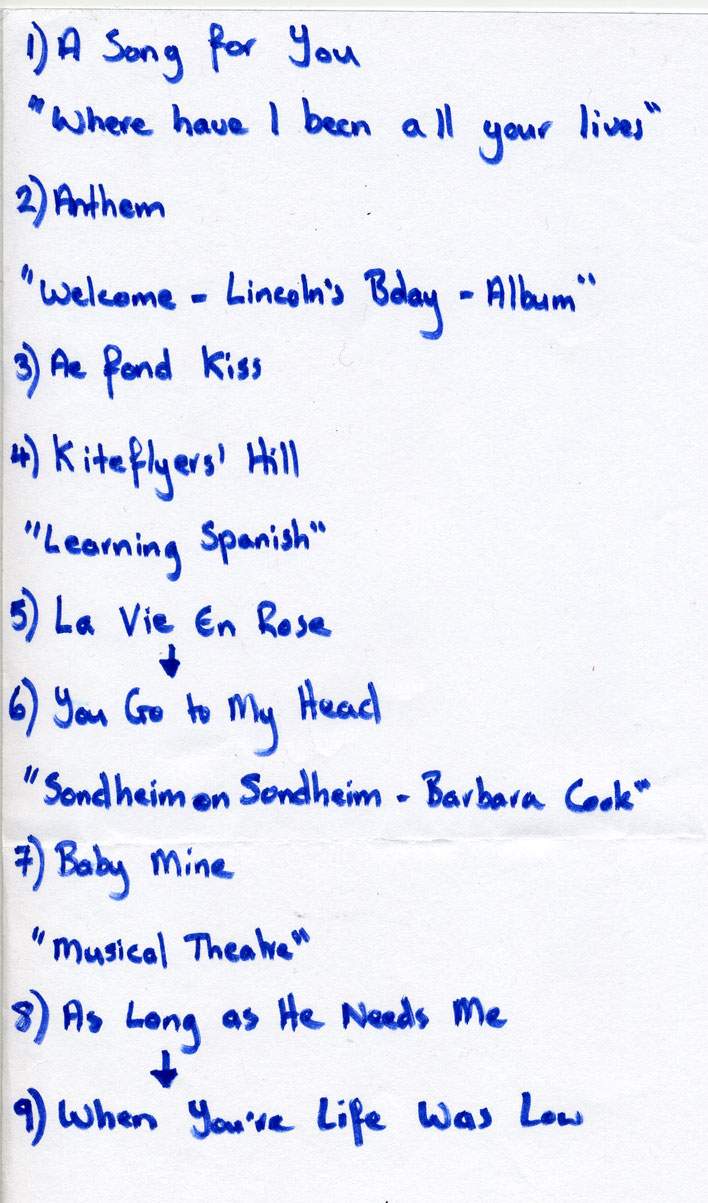 1) A Song for You
"Where have I been all your lives"
2) Anthem
"Welcome - Lincoln's Bday - Album"
3) Ae fond Kiss
4) Kiteflyers' Hill
"Learning Spanish"
5) La Vie En Rose
↓
6) You Go to My Head
"Sondheim on Sondheim - Barbara Cook"
7) Baby Mine
"Musical Theatre"
8) As Long as He Needs Me
↓
9) When You're Life Was Low